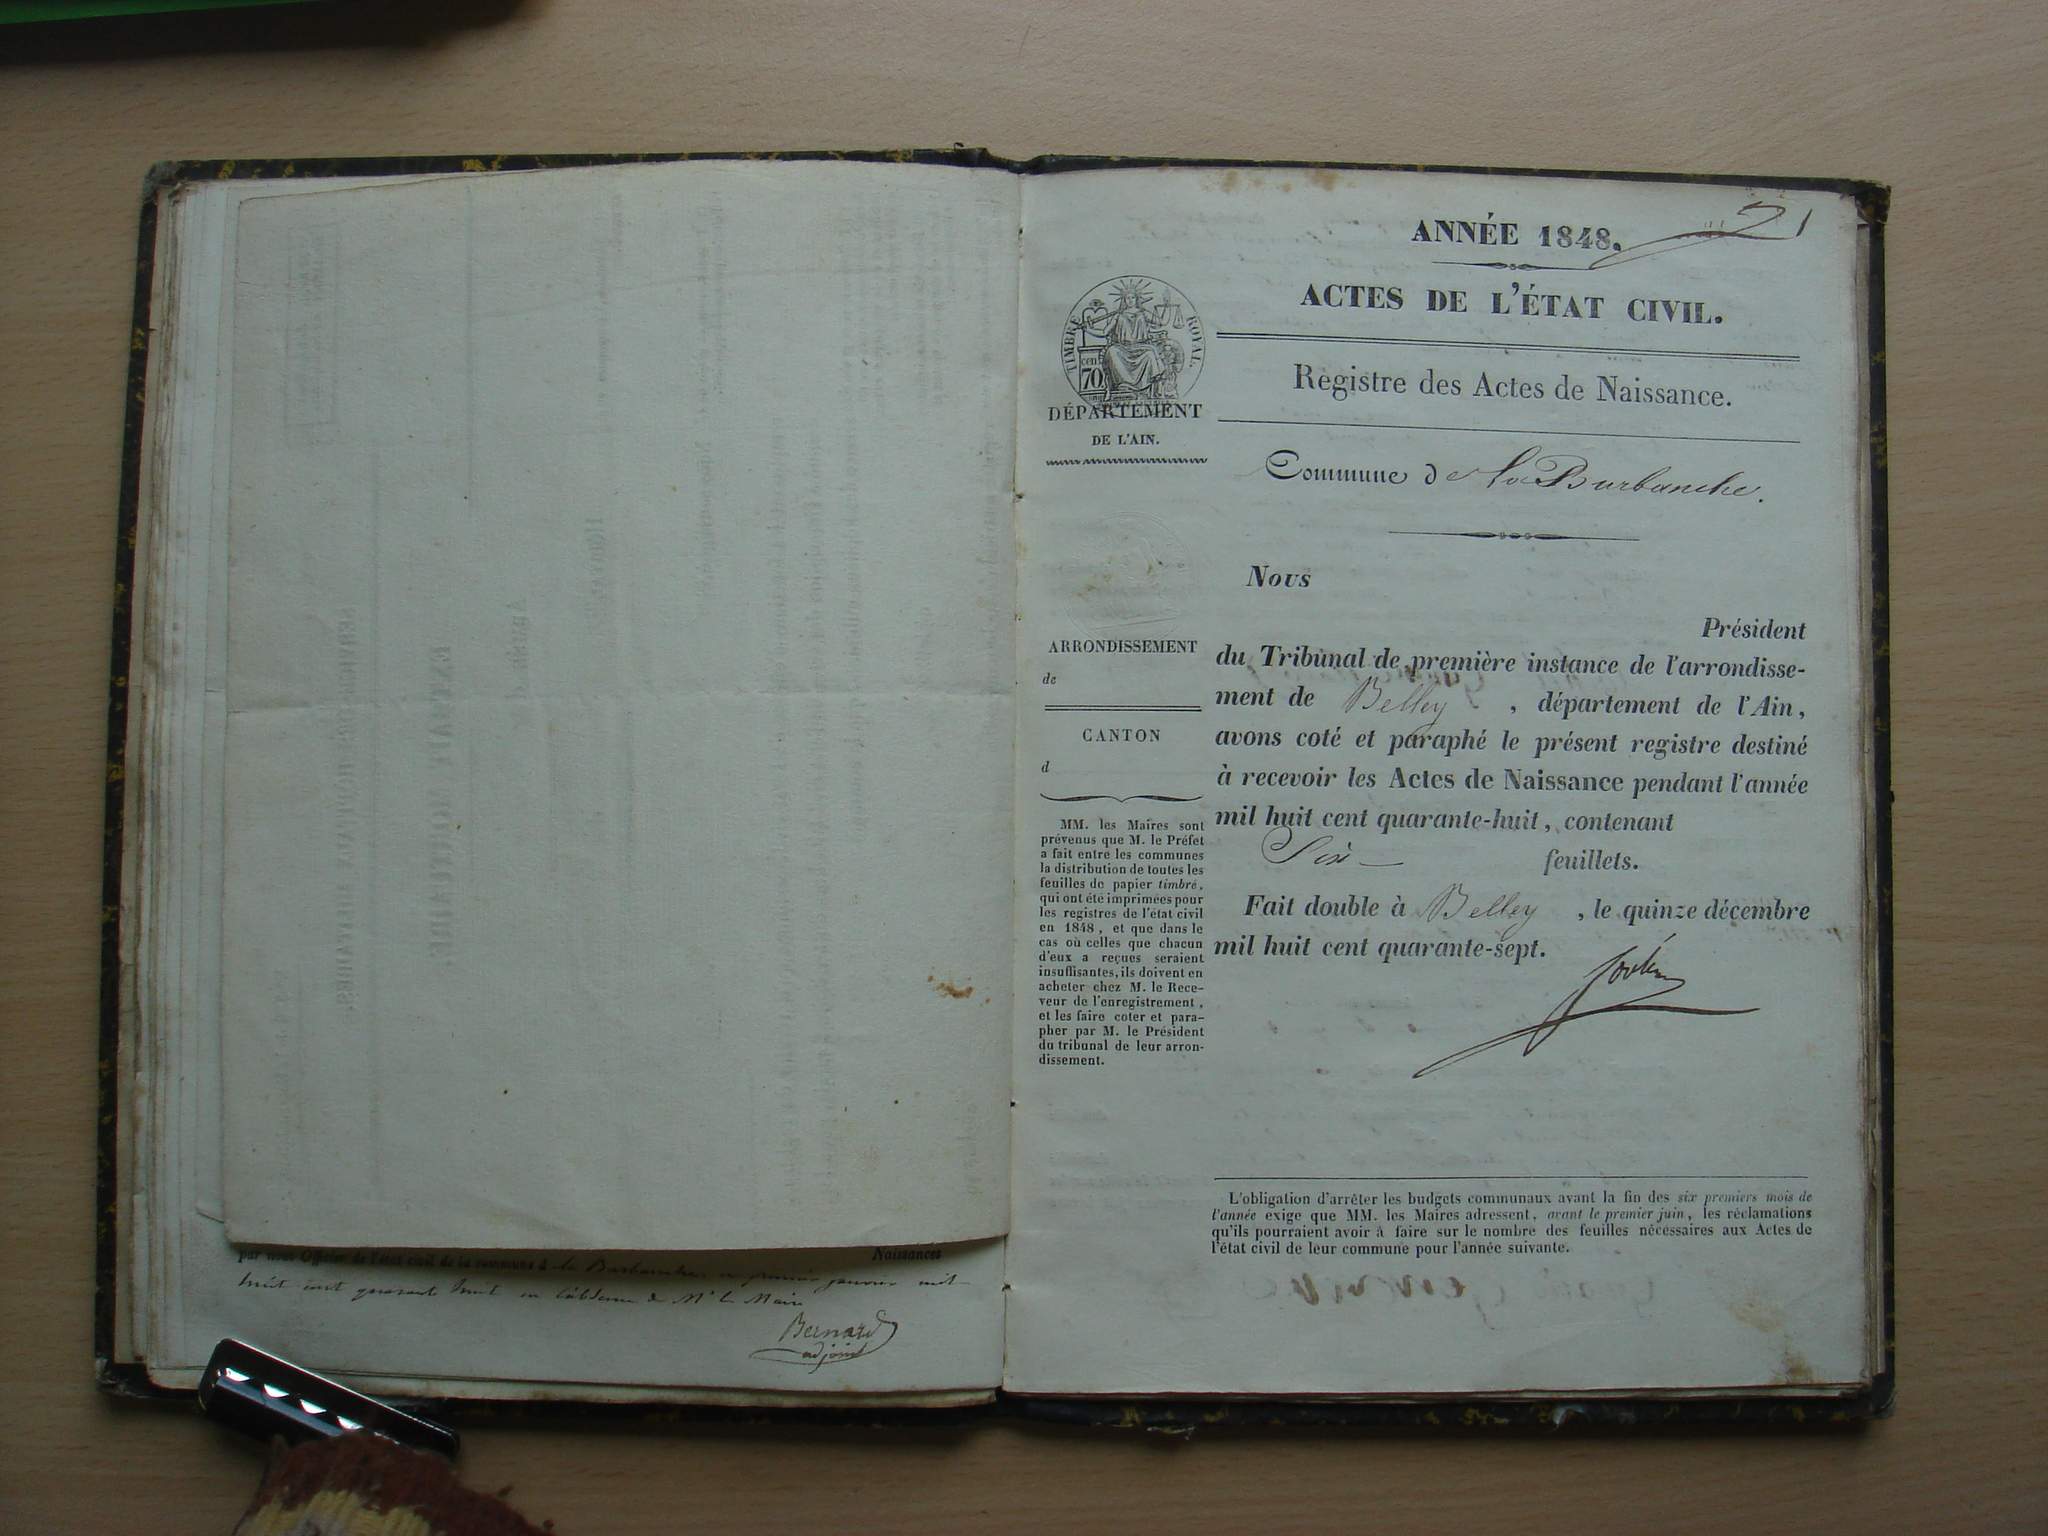 par nous Officier de l'état civil de la commune de la Burbanche ce premier janvier mil
Naissances
huit cent quarante huit en l'absence de Mr le Maire
Bernard
adjoint
ANNÉE 1848.
ACTES DE L'ÉTAT CIVIL.
TIMBRE ROYAL.
cen
70
DÉPARTEMENT
DE L'AIN.
Registre des Actes de Naissance.
Commune de la Burbanche.
Nous
Président
du Tribunal de première instance de l'arrondisse-
ment de Belley, département de l'Ain,
avons coté et paraphé le présent registre destiné
à recevoir les Actes de Naissance pendant l'année
mil huit cent quarante-huit, contenant
Six feuillets.
Fait double à Belley, le quinze décembre
mil huit cent quarante-sept.
ARRONDISSEMENT
de
CANTON
d
MM. les Maires sont
prévenus que M. le Préfet
a fait entre les communes
la distribution de toutes les
feuilles de papier timbré,
qui ont été imprimées pour
les registres de l'état civil
en 1848, et que dans le
cas où celles que chacun
d'eux a reçues seraient
insuffisantes, ils doivent en
acheter chez M. le Rece-
veur de l'enregistrement,
et les faire coter et para-
pher par M. le Président
du tribunal de leur arron-
dissement.
L'obligation d'arrêter les budgets communaux avant la fin des six premiers mois de
l'année exige que MM. les Maires adressent, avant le premier juin, les réclamations
qu'ils pourraient avoir à faire sur le nombre des feuilles nécessaires aux Actes de
l'état civil de leur commune pour l'année suivante.